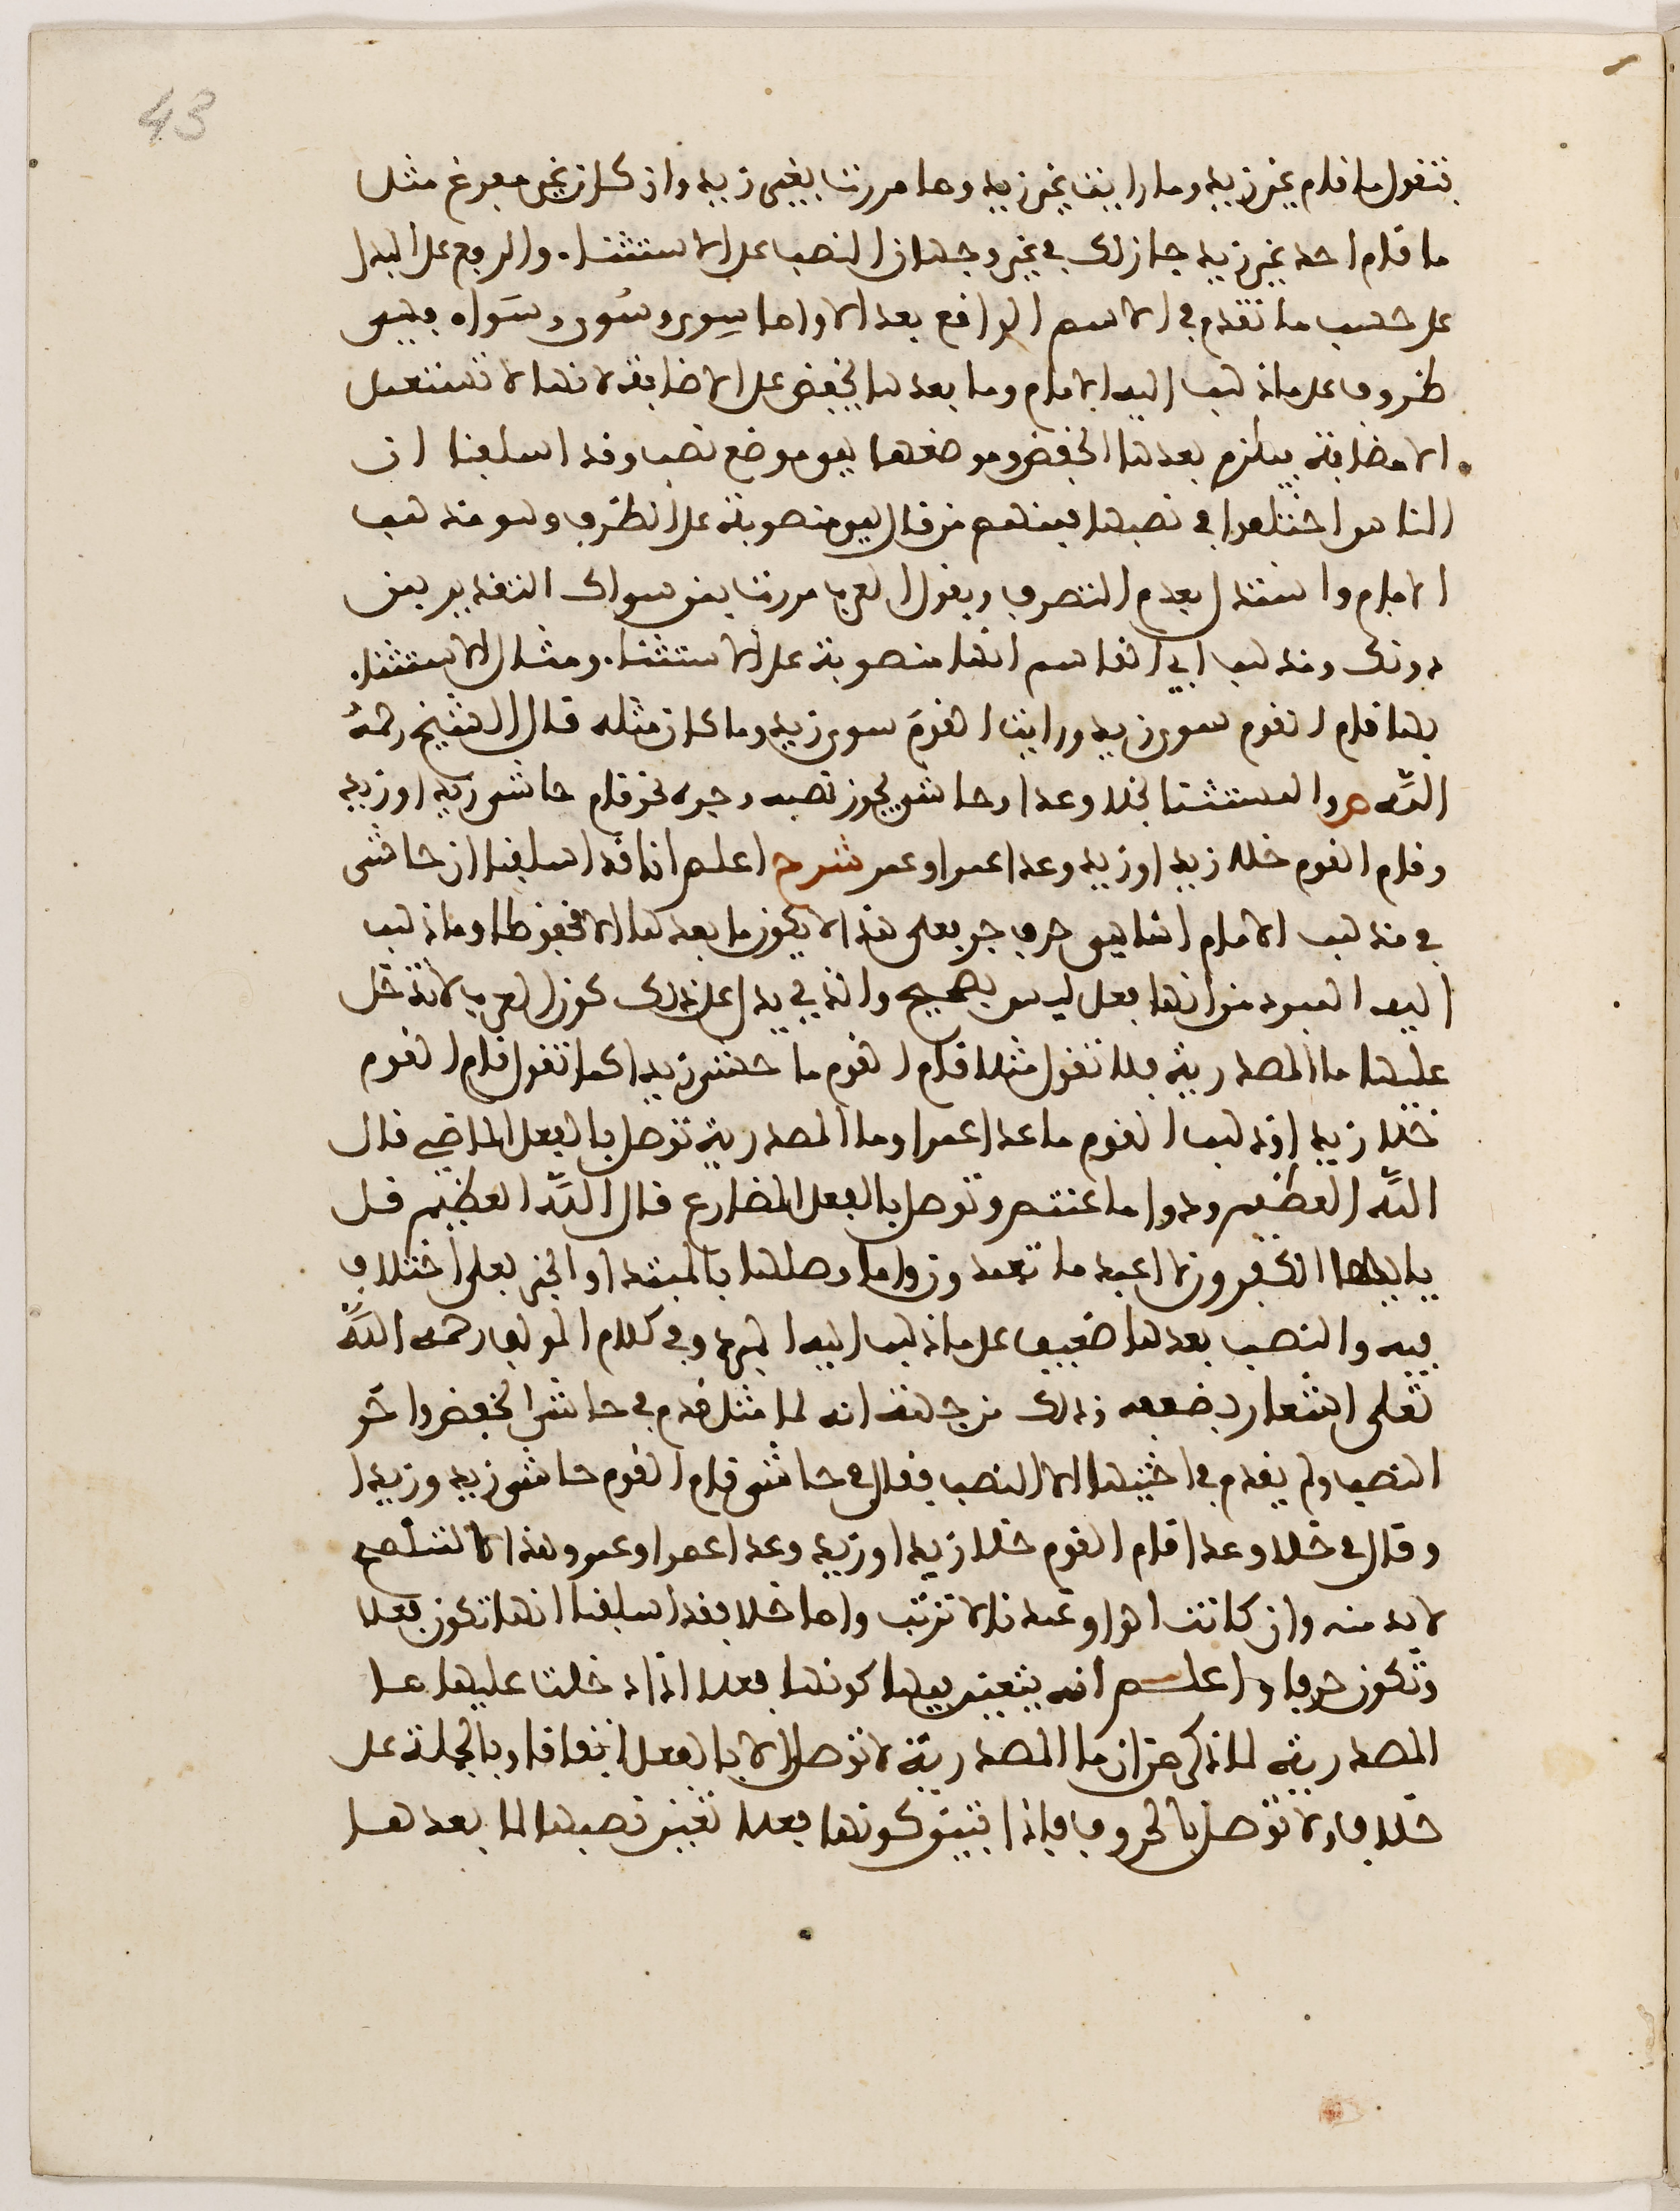 43
فتقول ما قام غير زيد وما رايت غير زيد وما مررت بغير زيد وان كان غير مفرغ مثل
ما قام احد غير زيد جاز لك في غير وجهان النصب على الاستثنا. والرفع على البدل
على حسب ما تقدم في الاسم الواقع بعد الا واما سِوى وسُوى وسَواء فهي
ظروف على ما ذهب اليه الامام وما بعدها يخفض على الاضافة لانها لا تستعمل
الا مضافة فيلزم بعدها الخفض وموضعها هو موضع نصب وقد اسلفنا ان
الناس اختلفوا في نصبها فمنهم من قال هي منصوبة على الظرف وهو مذهب
الامام واستدل بعدم التصرف وبقول العرب مررت بمن سواك التقدير بمن
دونك ومذهب ابي القاسم انها منصوبة على الاستثنا. ومثال الاستثنا.
بها قام القوم سوى زيد ورايت القومَ سوى زيد وما كان مثله قال الشيخ رحمهُ
اللّه ص والمستثنا بخلا وعدا وحاشى يجوز نصبه وجره نحو قام حاشى زيد او زيد
وقام القوم خلا زيد اوزيد وعدا عمرا وعمر شرح اعلم انا قد اسلفنا ان حاشى
في مذهب الامام انما هي حرف جر فعلى هذا لا يكون ما بعدها الا مخفوظا وما ذهب
اليه المبرد من انها فعل ليس بصحيح والذي يدل على ذلك كون العرب لا تدخل
عليها ما المصدرية فلا تقول مثلا قام القوم ما حشى زيدا كما تقول قام القوم
خلا زيدا وذهب القوم ما عدا عمرا وما المصدرية توصل بالفعل الماضي قال
اللّه العظيم ودوا ما عنتم وتوصل بالفعل المضارع قال اللّه العظيم قل
يا يها الكفرون لا اعبد ما تعبدون واما وصلها بالمبتدا والخبر فعلى اختلاف
فيه والنصب بعدها ضعيف على ما ذهب اليه المبرد وفي كلام المولف رحمه اللّه
تعلى اشعار بضعفه وذلك من جهة انه لما مثل قدم في حاشى الخفض واخر
النصب ولم يقدم في اختيها الا النصب فقال في حاشى قام القوم حاشى زيد وزيدا
وقال في خلا وعدا قام القوم خلا زيدا وزيد وعدا عمرا وعمر وهذا لا
لا بد منه وان كانت الواو عندنا لا ترتب واما خلا فقد اسلفنا انها تكون فعلا
وتكون حرفا واعلم انه يتعين فيها كونها فعلا اذا دخلت عليها ما
المصدرية لما ذكر من ان ما المصدرية لا توصل الا بالفعل اتفاقا وبالجملة على
خلاف ولا توصل بالحروف فاذا تبين كونها فعلا تعين نصبها لما بعدها